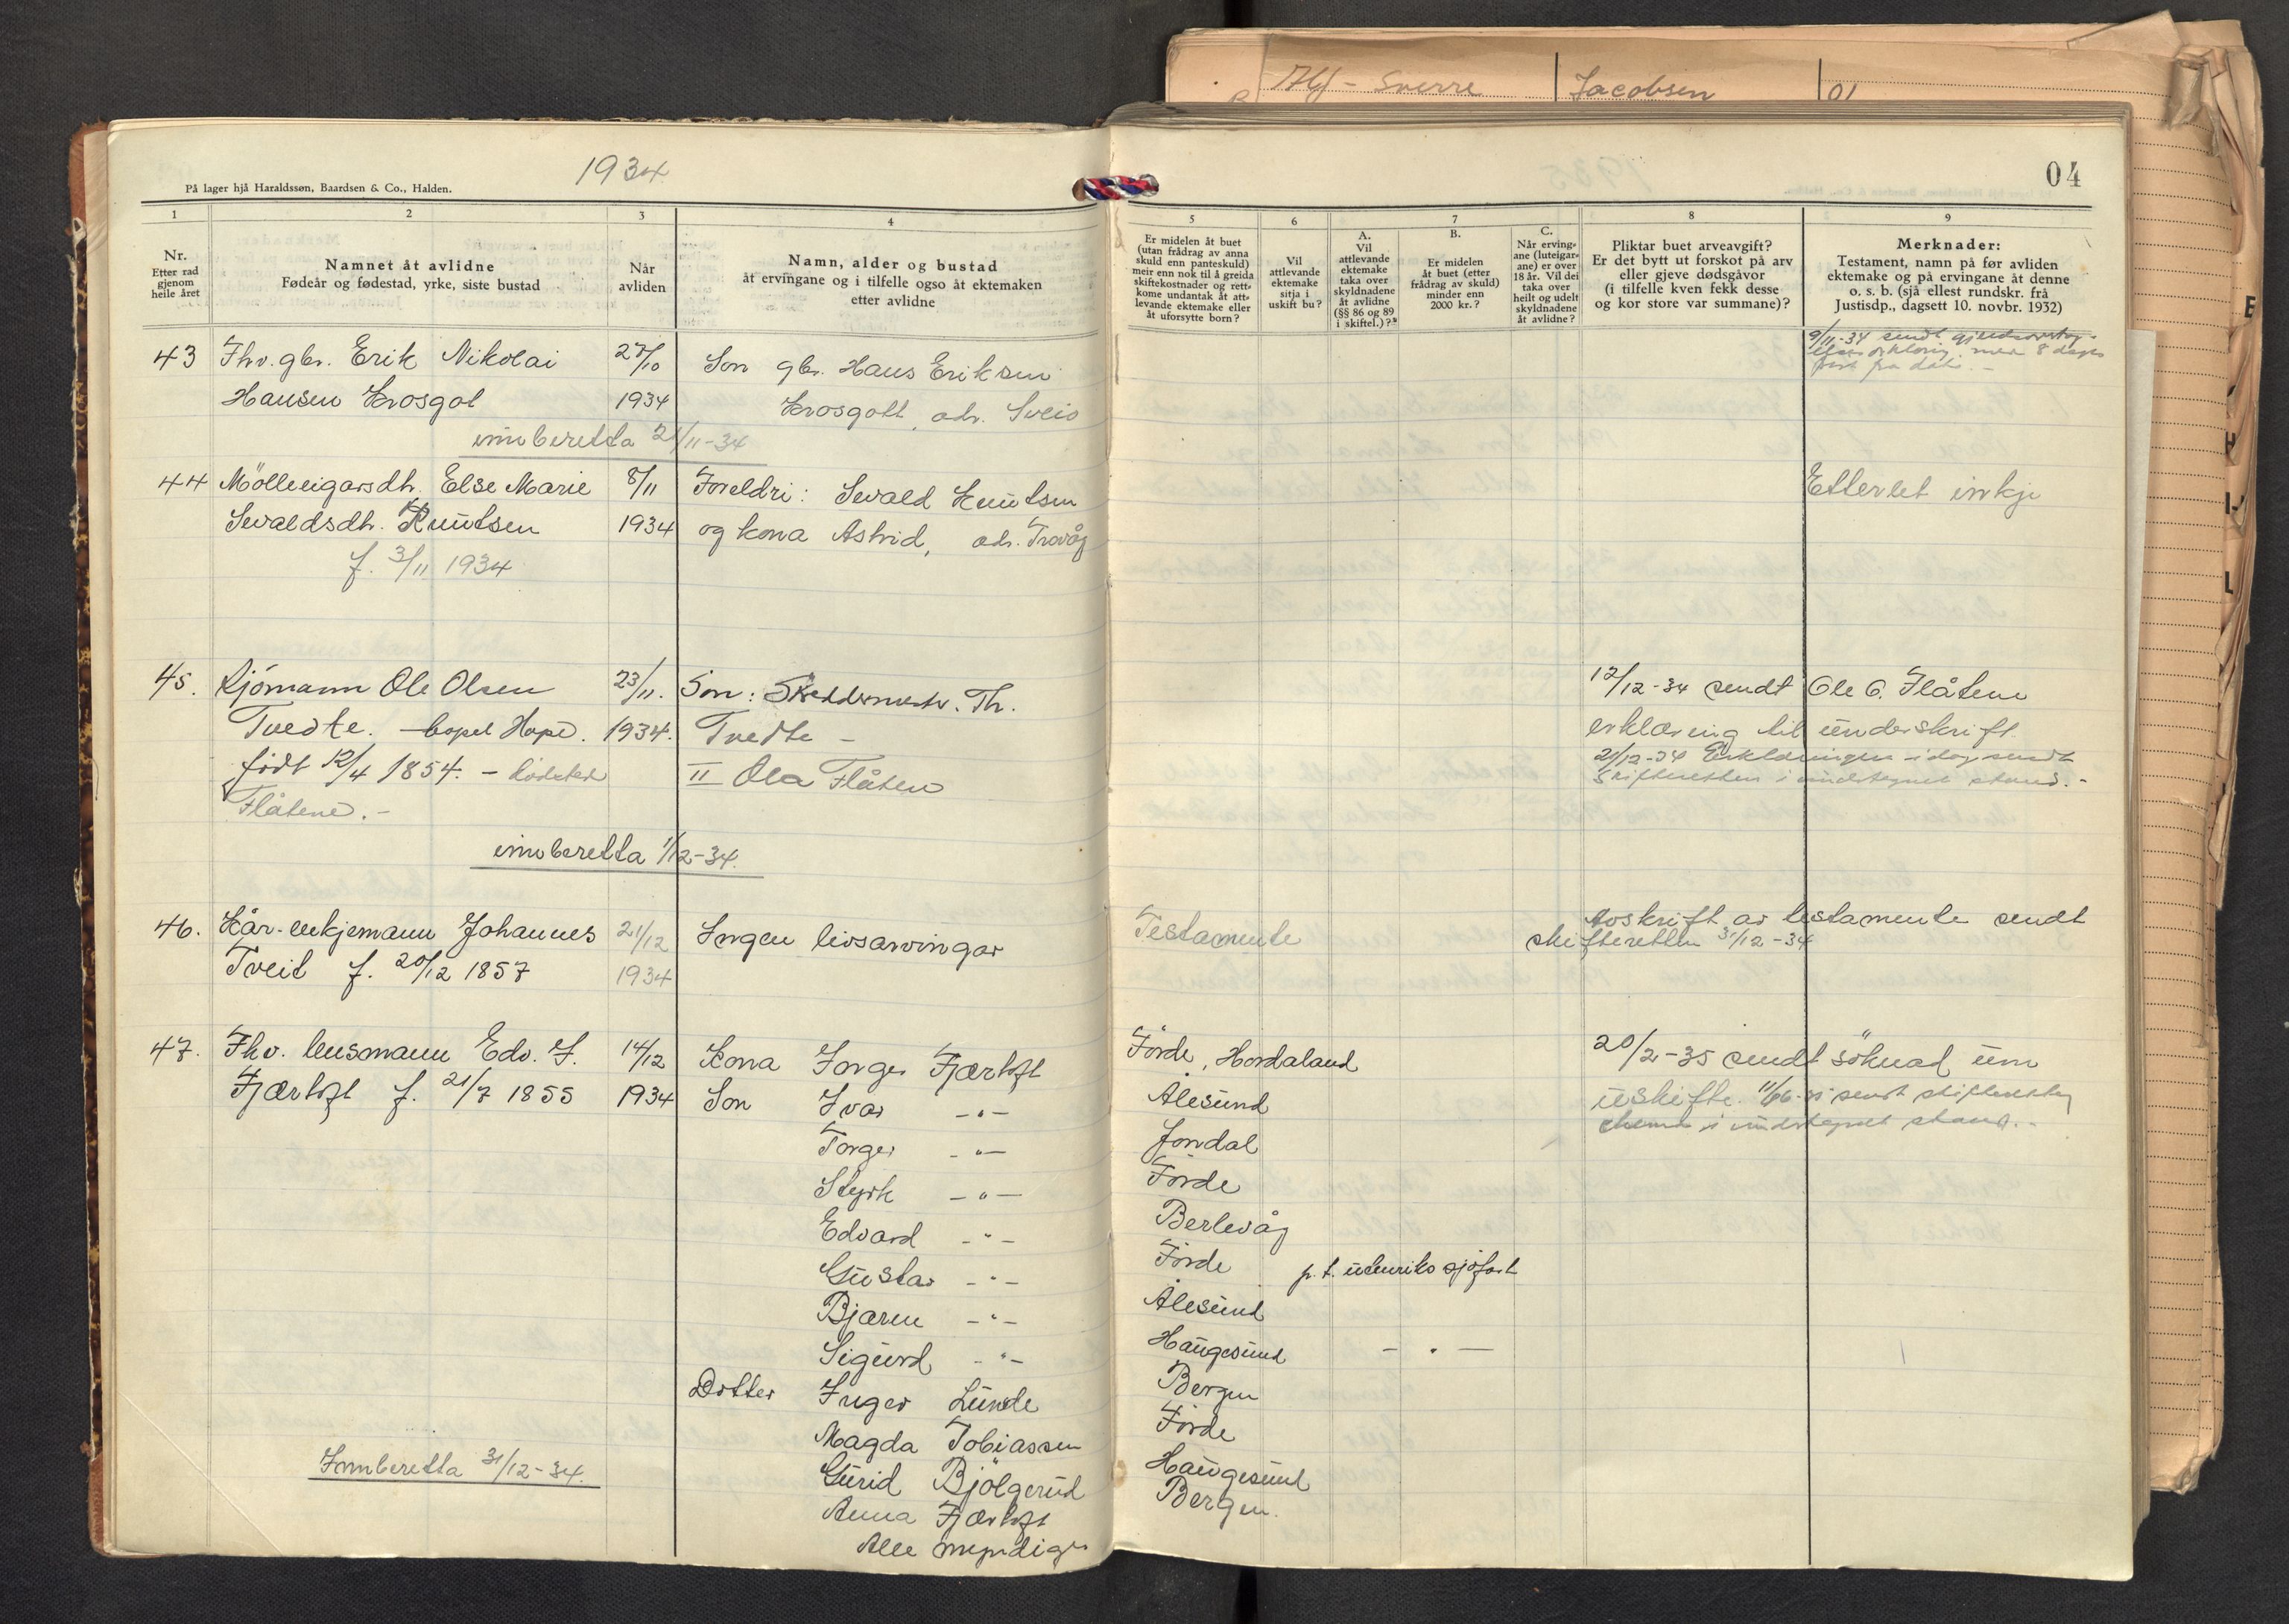 Alf - Sverre Jacobsen
1934
På lager hjå Haraldssøn, Baardsen & Co., Halden.
04
1 2 3 4
5 6 7 8 9
Nr.
Etter rad
gjenom
heile året
Namnet åt avlidne
Fødeår og fødestad, yrke, siste bustad
Når
avliden
Namn, alder og bustad
åt ervingane og i tilfelle ogso åt ektemaken
etter avlidne
Er midelen åt buet
(utan frådrag av anna
skuld enn panteskuld)
meir enn nok til å greida
skiftekostnader og rett-
kome undantak åt att-
levande ektemake eller
åt uforsytte born?
Vil
attlevande
ektemake
sitja i
uskift bu?
A.
Vil
attlevande
ektemake
taka over
skyldnadene
åt avlidne
(§§ 86 og 89
i skiftel.)?*
B.
Er midelen
åt buet (etter
frådrag av skuld)
minder enn
2000 kr.?
C.
Når erving-
ane (luteigar-
ane) er over
18 år. Vil dei
taka over
heilt og udelt
skyldnadene
åt avlidne?
Pliktar buet arveavgift?
Er det bytt ut forskot på arv
eller gjeve dødsgåvor
(i tilfelle kven fekk desse
og kor store var summane)?
Merknader:
Testament, namn på før avliden
ektemake og på ervingane åt denne
o. s. b. (sjå ellest rundskr. frå
Justisdp., dagsett 10. novbr. 1932)
43 Fhv. gbr. Erik Nikolai 27/10 Son gbr. Hans Eriksen
9/11-34 sendt
med 8 dages
frist fra dato. -
Hansen Krosgot 1934 Krosgott, adr. Sveio
innberetta 21/11-34
44 Mölleeigarsdtr. Else Marie 8/11 Foreldri: Sevald Knutsen Etterlet inkje
Sevaldsdtr. Knutsen 1934 og kona Astrid, adr. Trovåg
f. 3/11 1934
45. Sjömann Ole Olsen 23/11. Son: Th. 12/12-34 sendt Ole O. Flåtene
Tvedte. - bopel Hope. 1934. Tvedte - erklæring til underskrift.
født 12/4 1854. - fødested II Ola Flåten 21/12-34 Erklæringen idag sendt
Skifteretten i undertegnet stand. -
Flåtene. -
innberetta 1/12-34.
46. Kår-enkjemann Johannes 21/12 Ingen livsarvingar Testamente Avskrift av testamente sendt
skifteretten 31/12-34
Tveit f. 20/12 1857 1934
47. Fhv. lensmann Edv. J. 14/12 Kona Inger Fjærtoft Förde, Hordaland 20/2-35 sendt söknad um
Fjærtoft f. 21/7 1855 1934 Son Ivar -"- Ålesund uskifte. sendt skifteretten
Torger -"- Jondal
i undertegnet stand. -
Styrk -"- Förde
Edvard -"- Berlevåg
Gustav -"- Förde p. t. utenriks sjöfart
Bjarne -"- Ålesund
Sigurd -"- Haugesund - " -
Dotter Inger Lunde Bergen
Magda Tobiassen Förde
Innberetta 31/12-34.
Gurid Bjölgerud Haugesund
Anna Fjærtoft Bergen.
Alle myndige